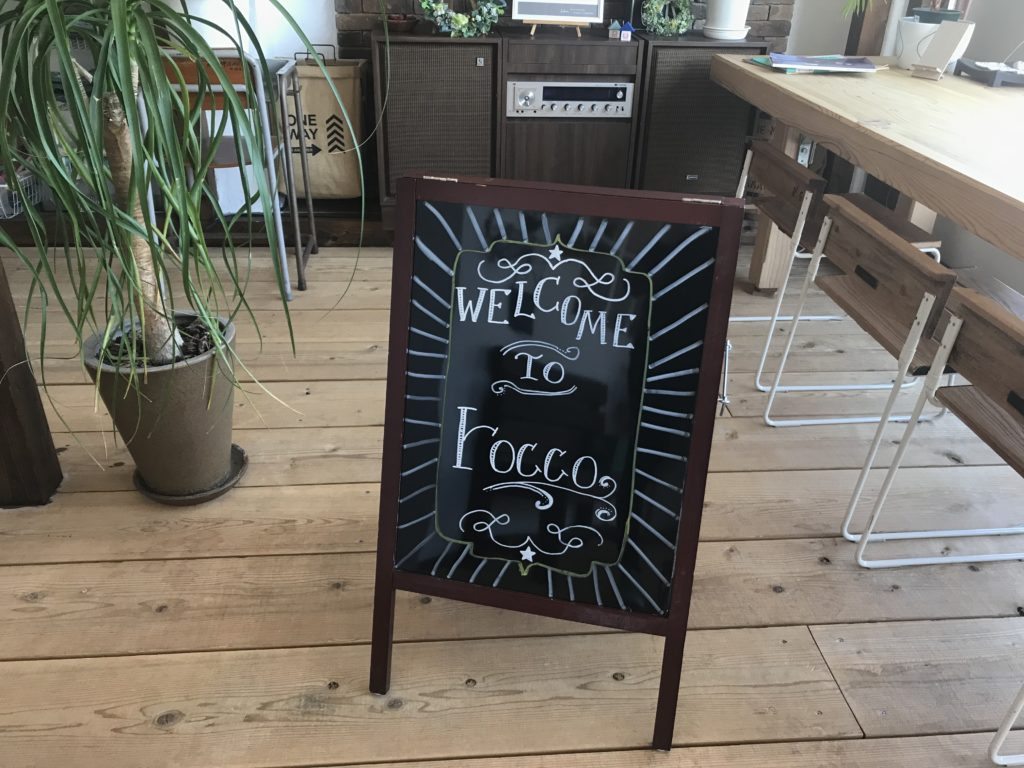 ONE
WAY
WELCOME
TO
rocco